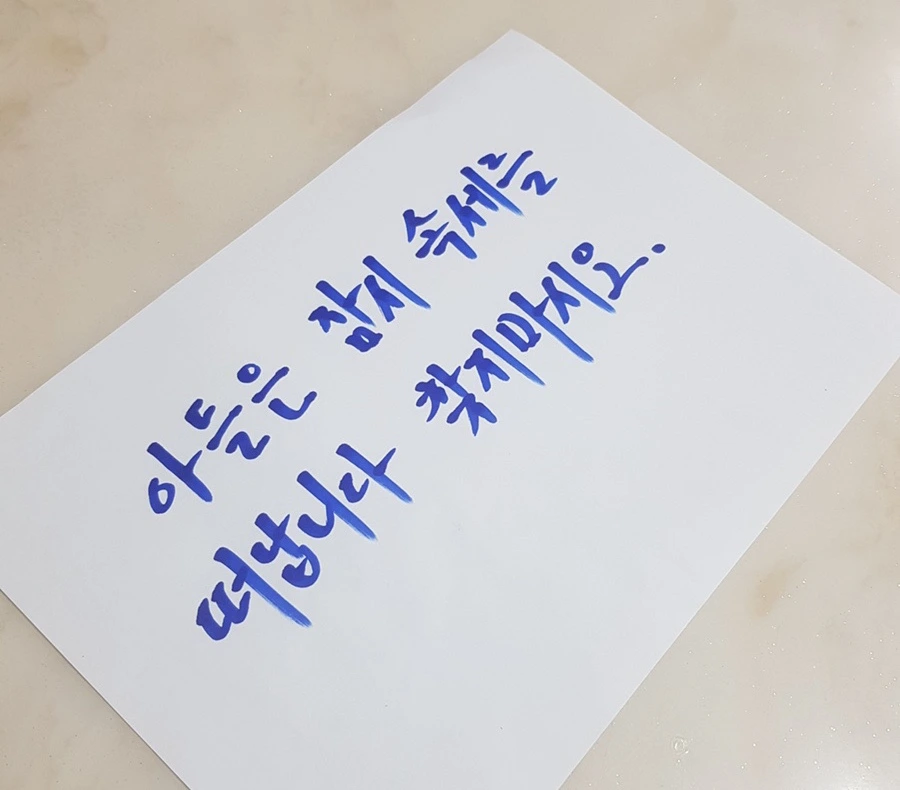 아들은 잠시 속세를
떠납니다 찾지마시오.